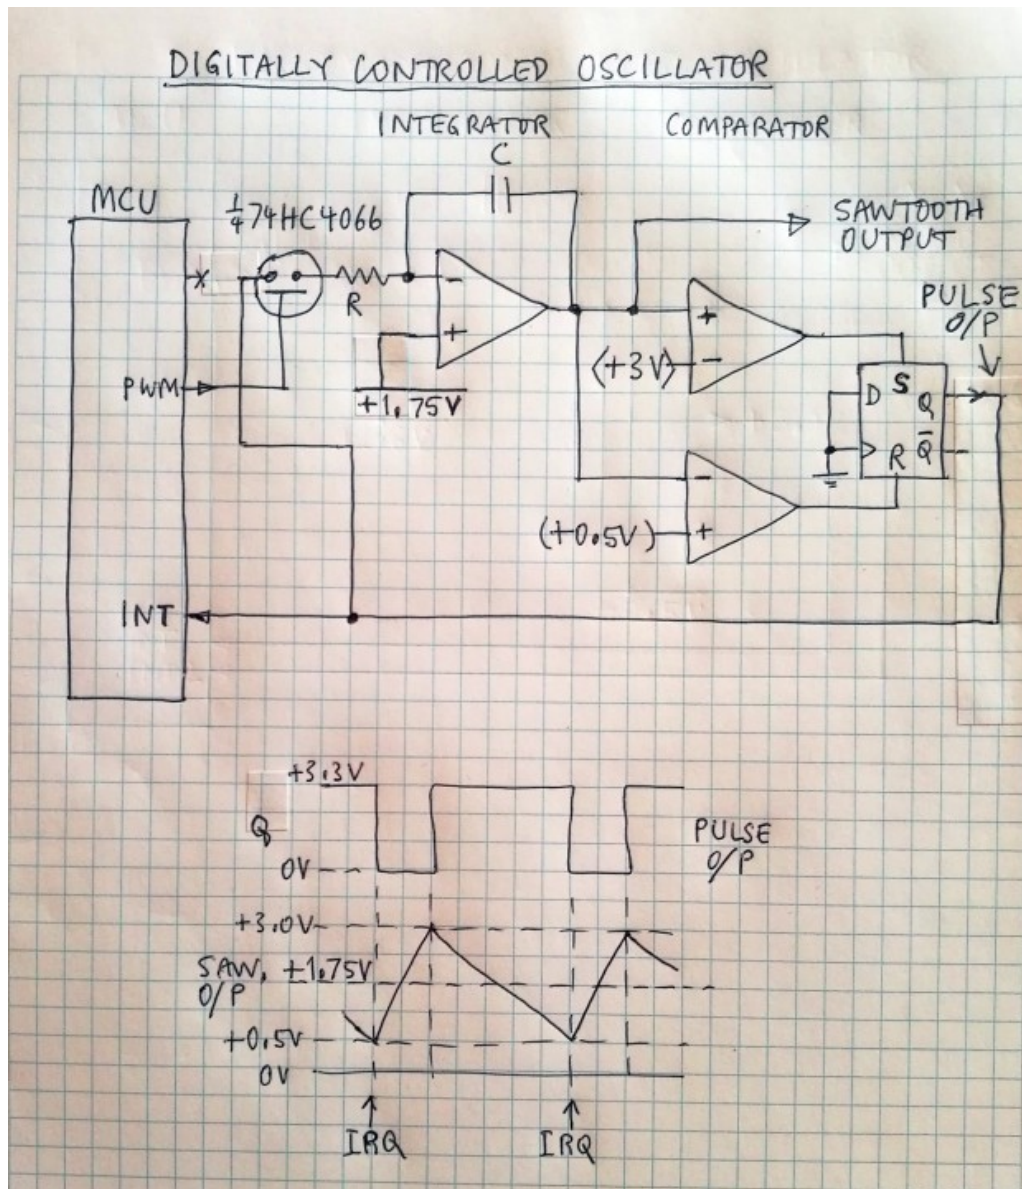 DIGITALLY CONTROLLED OSCILLATOR
INTEGRATOR
COMPARATOR
C
MCU
1/4 74HC4066
SAWTOOTH
OUTPUT
×
R
-
+
+1.75V
PWM
+
(+3V) -
PULSE
O/P
D S Q
> R Q̅
-
(+0.5V) +
INT
+3.3V
Q
0V
PULSE
O/P
+3.0V
SAW. +1.75V
O/P
+0.5V
0V
IRQ
IRQ